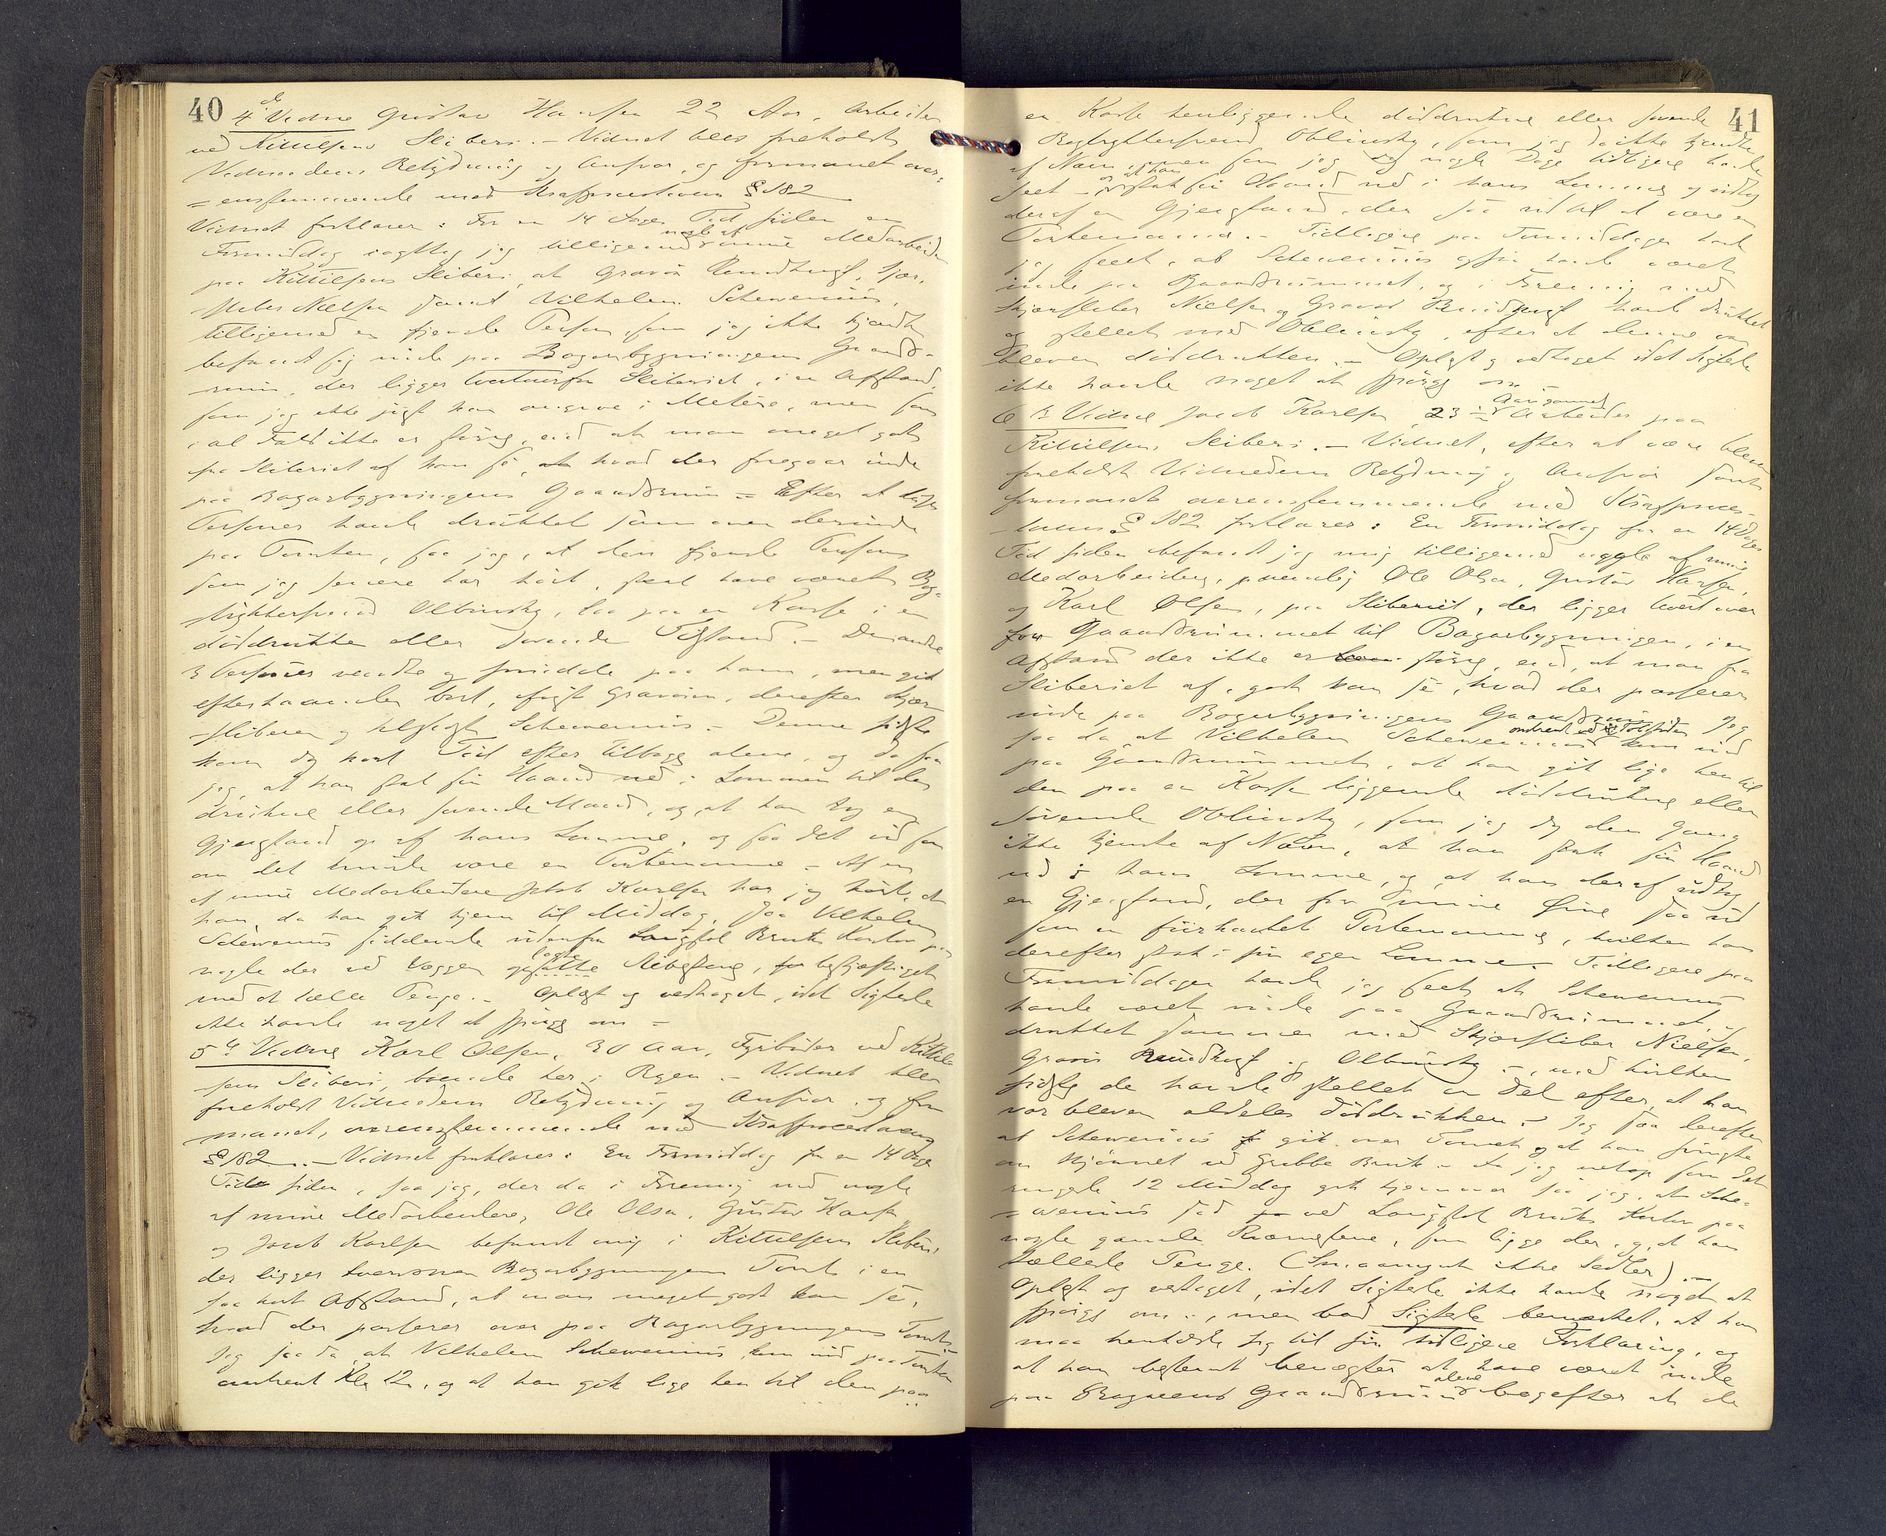 40
4de Vidne Gustav Hansen 22 Aar, Arbeider
ved Kittilsens Sliberi. – Vidnet blev foreholdt
Vidneedens Betydning og Ansvar, og formanet over-
= ensstemmende med Straffeproceslovens § 182
Vidnet forklarer: For en 14 Dages Tid siden en
Formiddag iagttog jeg tilligemed nogle af mine Medarbeidere
paa Kittilsens Sliberi at Gravør Rundhugt, Skjær-
sliber Nielsen samt Vilhelm Schewenius,
tilligemed en fjerde Person, som jeg ikke kjendte
befandt sig inde paa Bogarbygningens Gaards-
rum, der ligger tvertoverfor Sliberiet, i en Afstand,
som jeg ikke just kan angive i Metere, men som
i al Fald ikke er større, end at man meget godt
fra Sliberiet af kan se, at hvad der foregaar inde
paa Bogarbygningens Gaardsrum – Efter at disse
Personer havde drukket sammen derinde
paa Tomten, saa jeg, at den fjerde Person
som jeg senere har hørt, skal have været Bog-
trykkersvend Olbinsky, laa paa en Kasse i en
døddrukken eller sovende Tilstand. – De andre
3 Personer vendte og snudde paa ham, men gik
efterhaanden bort, først Gravøren, derefter Skjær-
sliberen og tilsidst Schewenius. – Denne sidste
kom dog kort Tid efter tilbage alene, og da saa
jeg, at han stak sin Haand ned i Lommen til den
drukne eller sovende Mand, og at han tog en
Gjenstand op af hans Lomme, og saa det ud som
om det kunde være en Portemonnæ – Af en
af mine Medarbeidere Jakob Karlsen har jeg hørt, at
han, da han gik hjem til Middag, saa Vilhelm
Schewenius siddende udenfor Langfos Bruks Kontor paa
nogle der ved Væggen satte , beskjæftiget
med at tælle Penge. – Oplæst og vedtaget, idet Sigtede
ikke havde noget at spørge om –
5te Vidne Karl Olsen, 30 Aar, Fyrbøder ved Kittil-
sens Sliberi, boende her i Byen. – Vidnet blev
foreholdt Vidneedens Betydning og Ansvar, og for-
manet, overensstemmende med Straffeproceslovens
§ 182. – Vidnet forklarer: En Formiddag for en 14 Dages
Tid siden, saa jeg, der da i Forening med nogle
af mine Medarbeidere, Ole Olsen, Gustav Hansen
og Jacob Karlsen befandt mig i Kittilsens Sliberi,
der ligger tversover Bogarbygningens Tomt i en
saa kort Afstand, at man meget godt kan se,
hvad der passerer over paa Bogarbygningens Tomt.
Jeg saa da, at Vilhelm Schewenius kom ind paa Tomten
omtrent Kl. 12, og at han gik lige hen til den paa
41
en Kasse henliggende døddrukne eller sovende
Bogtrykkersvend Oblinsky, som jeg da ikke kjendte
af Navn, men som jeg nogle Dage tidligere havde
seet – og at han stak sin Haand ned i hans Lomme og udtog
deraf en Gjenstand, der saa ud til at være en
Portemonnæ. – Tidligere paa Formiddagen havde
jeg seet, at Schewenius ogsaa havde været
inde paa Gaardsrummet, og i Forening med
Skjærsliber Nielsen og Gravør Rundhugt havde drukket
og stellet med Oblinsky, efter at denne var
bleven døddrukken. – Oplæst og vedtaget idet Sigtede
ikke havde noget at spørge om –
6te Vidne Jacob Karlsen, 23 Aar gammel Arbeider paa
Kittilsens Sliberi. – Vidnet, efter at være bleven
foreholdt Vidneedens Betydning og Ansvar samt
formanet overensstemmende med Straffeproces-
= lovens § 182 forklarer: En Formiddag for en 14 Dages
Tid siden befandt jeg mig tilligemed nogle af mine
Medarbeidere, nemlig Ole Olsen, Gustav Hansen,
og Karl Olsen, paa Sliberiet, der ligger tvert over
for Gaardsrummet til Bogarbygningen, i en
Afstand der ikke er større, end, at man fra
Sliberiet af, godt kan se, hvad der passerer
inde paa Bogarbygningens Gaardsrum. Jeg
saa da at Vilhelm Schewenius omtrent ved Tolvtiden kom ind
paa Gaardsrummet, at han gik lige hen til
den paa en Kasse liggende døddrukne eller
sovende Oblinsky, som jeg dog den Gang
ikke kjendte af Navn, at han stak sin Haand
ned i hans Lomme, og at han deraf udtog
en Gjenstand, der for mine Øine saa ud
som en Portemonnæ, hvilken han
derefter stak i sin egen Lomme. Tidligere paa
Formiddagen havde jeg seet at Schewenius
havde været inde paa Gaardsrummet, og
drukket sammen med Skjærsliber Nielsen,
Gravør Rundhugt og Olbinsky –, med hvilken
sidste de havde stellet en Del efter, at han
var bleven aldeles døddrukken. – Jeg saa derefter
at Schewenius gik over Tomten og at han
om Hjørnet ved Bruk. – Da jeg netop som det
ringede 12 Middag gik hjemover saa jeg, at Sche-
= wenius sad ved Langfos Bruks Kontor paa
nogle gamle , som ligge der, og at han
tællede Penge. (Smaamynt ikke Sedler). –
Oplæst og vedtaget, idet Sigtede ikke havde noget at
spørge om, men bad Sigtede bemærket, at han
maa henholde sig til sin tidligere Forklaring, og
at han bestemt benægter at have været inde
paa Gaardsrum alene bagefter at de